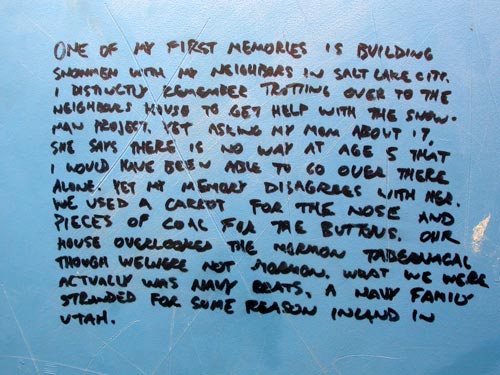 ONE OF MY FIRST MEMORIES IS BUILDING
SNOWMEN WITH MY NEIGHBORS IN SALT LAKE CITY.
I DISTINCTLY REMEMBER TROTTING OVER TO THE
NEIGHBORS HOUSE TO GET HELP WITH THE SNOW-
MAN PROJECT. YET ASKING MY MOM ABOUT IT,
SHE SAYS THERE IS NO WAY AT AGE 5 THAT
I WOULD HAVE BEEN ABLE TO GO OVER THERE
ALONE. YET MY MEMORY DISAGREES WITH HER.
WE USED A CARROT FOR THE NOSE AND
PIECES OF COAL FOR THE BUTTONS. OUR
HOUSE OVERLOOKED THE MORMON TABERNACAL
THOUGH WE WERE NOT MORMON. WHAT WE WERE
ACTUALLY WAS NAVY BRATS, A NAVY FAMILY
STRANDED FOR SOME REASON INLAND IN
UTAH.